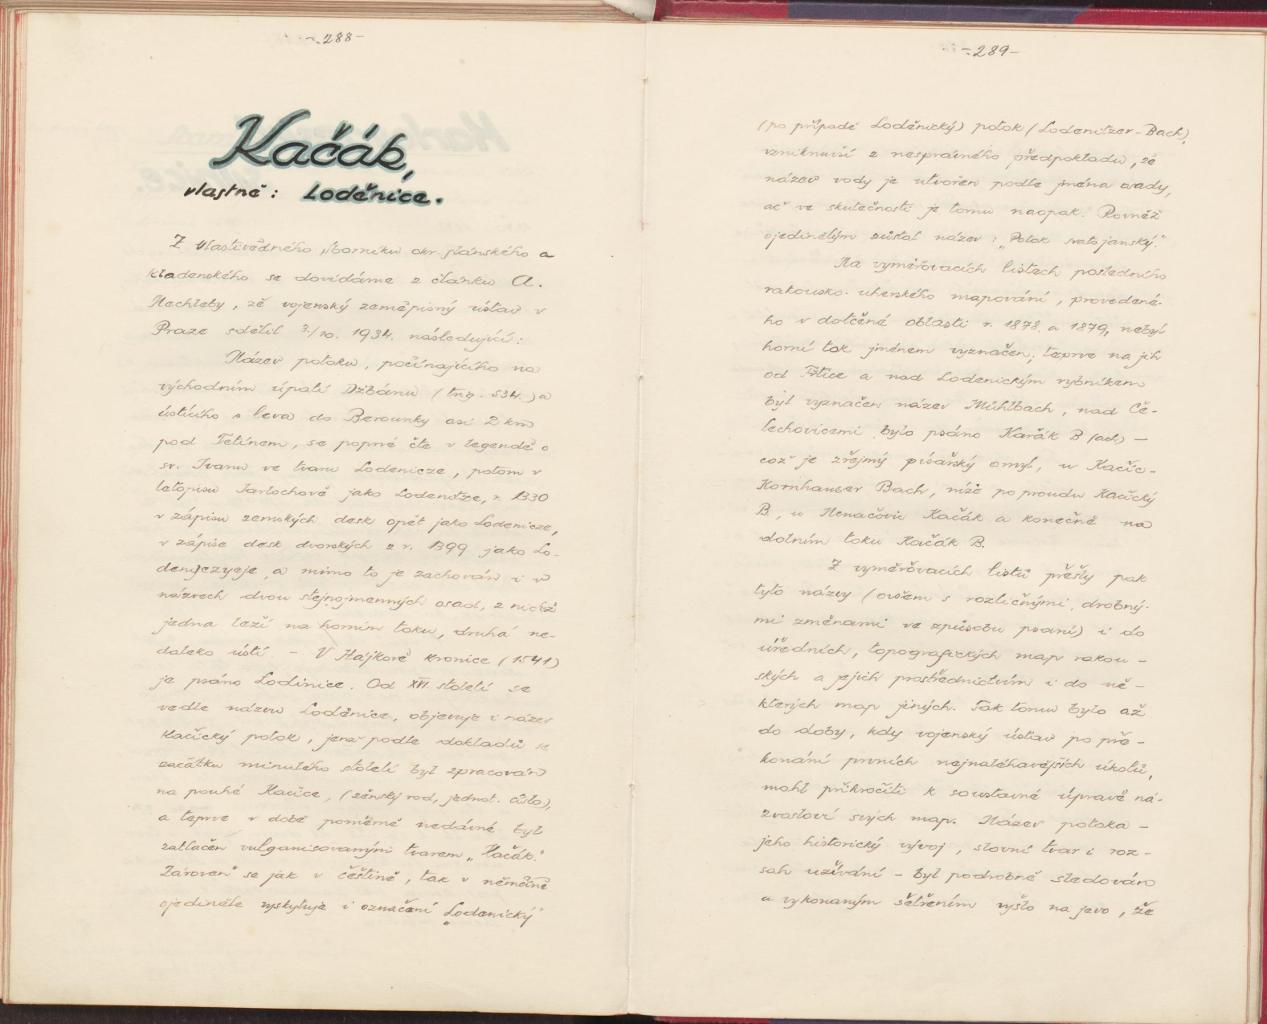 -288-
Kačák,
vlastně: Loděnice.
Z vlastivědného sborníku okr. slánského a
kladenského se dovídáme z článku A.
Nechleby, že vojenský zeměpisný ústav v
Praze sdělil 3./10. 1934. následující:
Název potoku, počínajícího na
východním úpatí Džbánu (trig. 534.) a
ústícího s leva do Berounky asi 2 km
pod Tetínem, se poprvé čte v legendě o
sv. Ivanu ve tvaru Lodenicze, potom v
letopisu Jarlochově jako Lodenitze, r. 1330
v zápisu zemských desk opět jako Lodenicze,
v zápise desk dvorských z r. 1399 jako Lo-
a mimo to je zachován i v
názvech dvou stejnojmenných osad, z nichž
jedna leží na horním toku, druhá ne-
daleko ústí. - V Hájkově kronice (1541)
je psáno Lodinice. Od XVI. století se
vedle názvu Loděnice, objevuje i název
Kačický potok, jenž podle dokladů se
začátku minulého století byl zpracován
na pouhé Kačice, (ženský rod, jednot. číslo),
a teprve v době poměrně nedávné byl
zatlačen vulgarisovaným tvarem „Kačák."
Zároveň se jak v češtině, tak v němčině
ojediněle vyskytuje i označení Lodenický
-289-
(po případě Loděnický) potok (Lodenitzer-Bach),
vzniknuvší z nesprávného předpokladu, že
název vody je utvořen podle jména osady,
ač ve skutečnosti je tomu naopak. Rovněž
ojedinělým zůstal název: „Potok svatojanský."
Na vyměřovacích listech posledního
rakousko-uherského mapování, provedené-
ho v dotčené oblasti r. 1878. a 1879, nebyl
horní tok jménem vyznačen, teprve na jih
od a nad Lodenickým rybníkem
byl vyznačen název Mühlbach, nad Če-
lechovicemi bylo psáno Karák B (ach) -
což je zřejmý písařský omyl, u Kačic-
Kornhauser Bach, níže po proudu Kačický
B., u Nenačovic Kačák a konečně na
dolním toku Kačák B.
Z vyměřovacích listů přešly pak
tyto názvy (ovšem s rozličnými, drobný-
mi změnami ve způsobu psaní) i do
úředních, topografických map rakou-
ských a jejich prostřednictvím i do ně-
kterých map jiných. Tak tomu bylo až
do doby, kdy vojenský ústav po pře-
konání prvních nejnaléhavějších úkolů,
mohl přikročiti k soustavné úpravě ná-
zvosloví svých map. Název potoka -
jeho historický vývoj, slovní tvar i roz-
sah užívání - byl podrobně sledován
a vykonaným šetřením vyšlo na jevo, že